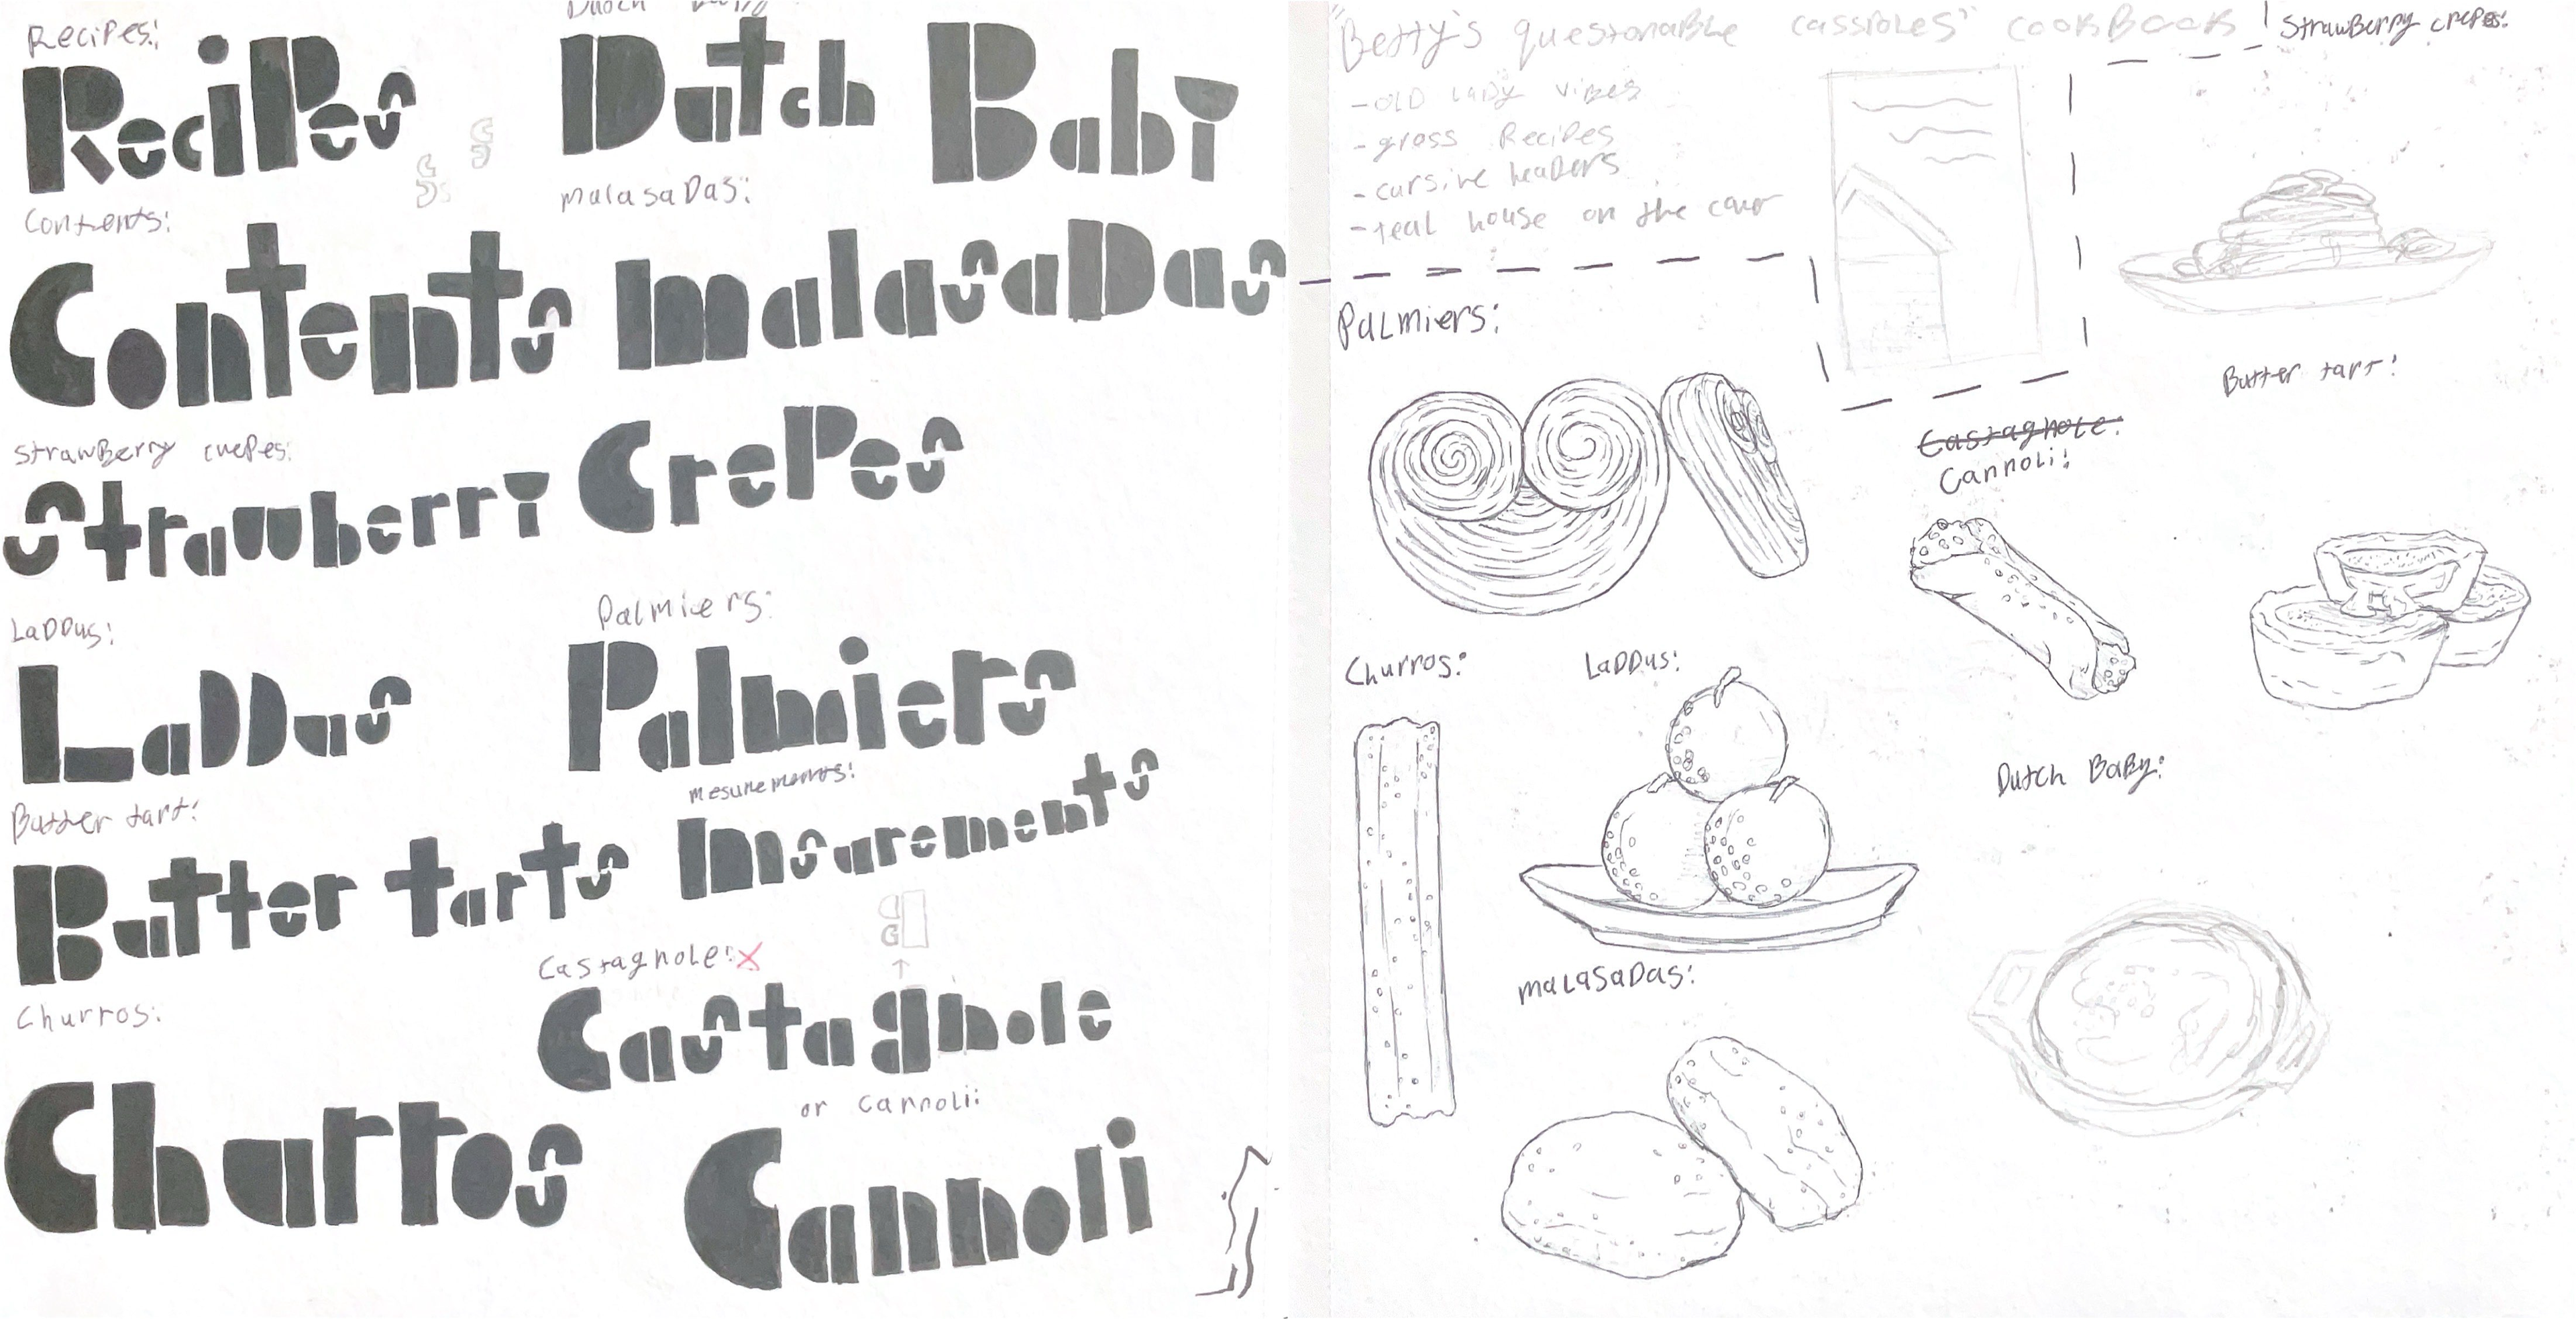 Recipes:
Recipes
Contents:
Contents
Strawberry crepes:
Strawberry Crepes
Laddus:
Laddus
Butter tart:
Butter tarts
Churros:
Churros
Dutch Baby
Dutch Baby
malasadas:
malasadas
Palmiers:
Palmiers
mesurements:
mesurements
Castagnole: X
Castagnole
or cannoli:
Cannoli
"Betty's questonable cassroles" cookbook
- old lady vibes
- gross Recipes
- cursive headers
- teal house on the cover
Strawberry crepes:
Palmiers:
Butter tart:
Castagnole:
Cannoli:
Churros:
Laddus:
Dutch Baby:
malasadas: